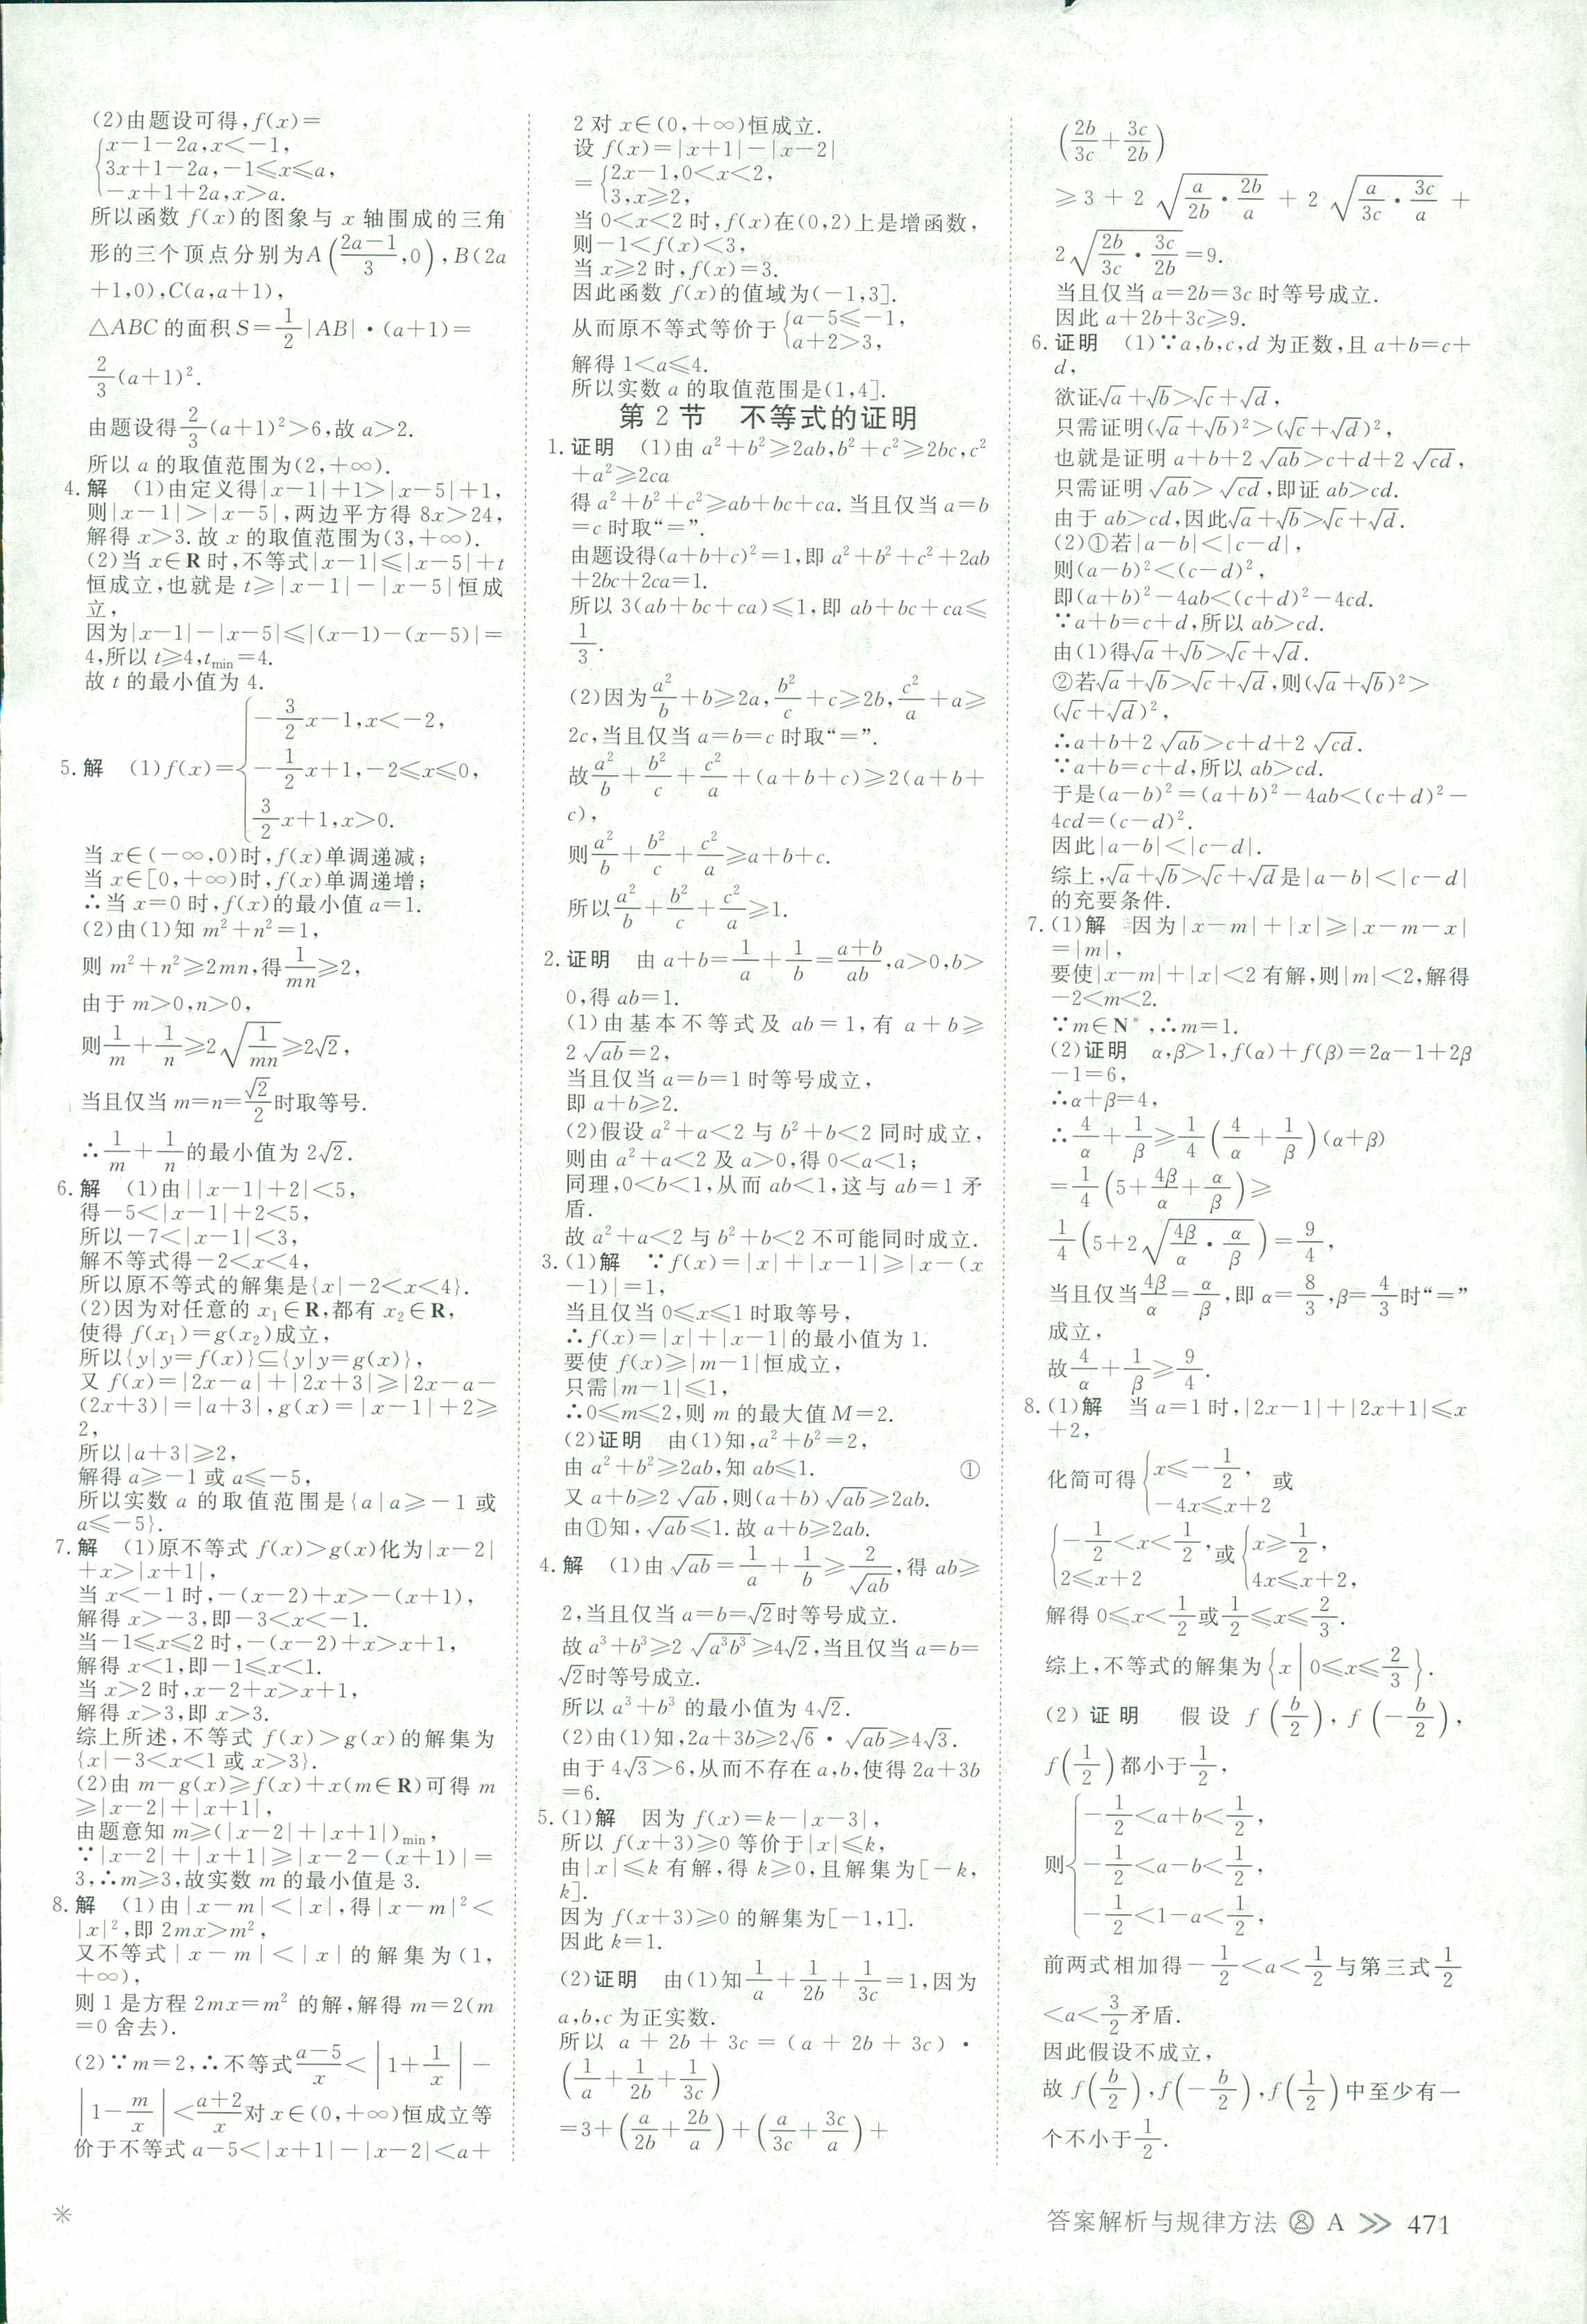 (2)由题设可得,f(x)=
{x-1-2a,x<-1,
3x+1-2a,-1≤x≤a,
-x+1+2a,x>a.
所以函数 f(x)的图象与 x 轴围成的三角
形的三个顶点分别为A((2a-1)/3,0),B(2a
+1,0),C(a,a+1),
△ABC 的面积 S=1/2|AB|·(a+1)=
2/3(a+1)².
由题设得2/3(a+1)²>6,故 a>2.
所以 a 的取值范围为(2,+∞).
4.解 (1)由定义得|x-1|+1>|x-5|+1,
则|x-1|>|x-5|,两边平方得 8x>24,
解得 x>3.故 x 的取值范围为(3,+∞).
(2)当 x∈R 时,不等式|x-1|≤|x-5|+t
恒成立,也就是 t≥|x-1|-|x-5|恒成
立,
因为|x-1|-|x-5|≤|(x-1)-(x-5)|=
4,所以 t≥4,t_min=4.
故 t 的最小值为 4.
5.解 (1)f(x)={-3/2x-1,x<-2,
-1/2x+1,-2≤x≤0,
3/2x+1,x>0.
当 x∈(-∞,0)时,f(x)单调递减;
当 x∈[0,+∞)时,f(x)单调递增;
∴当 x=0 时,f(x)的最小值 a=1.
(2)由(1)知 m²+n²=1,
则 m²+n²≥2mn,得1/mn≥2,
由于 m>0,n>0,
则1/m+1/n≥2√(1/mn)≥2√2,
当且仅当 m=n=√2/2时取等号.
∴1/m+1/n的最小值为 2√2.
6.解 (1)由||x-1|+2|<5,
得-5<|x-1|+2<5,
所以-7<|x-1|<3,
解不等式得-2<x<4,
所以原不等式的解集是{x|-2<x<4}.
(2)因为对任意的 x₁∈R,都有 x₂∈R,
使得 f(x₁)=g(x₂)成立,
所以{y|y=f(x)}⊆{y|y=g(x)},
又 f(x)=|2x-a|+|2x+3|≥|2x-a-
(2x+3)|=|a+3|,g(x)=|x-1|+2≥
2,
所以|a+3|≥2,
解得 a≥-1 或 a≤-5,
所以实数 a 的取值范围是{a|a≥-1 或
a≤-5}.
7.解 (1)原不等式 f(x)>g(x)化为|x-2|
+x>|x+1|,
当 x<-1 时,-(x-2)+x>-(x+1),
解得 x>-3,即-3<x<-1.
当-1≤x≤2 时,-(x-2)+x>x+1,
解得 x<1,即-1≤x<1.
当 x>2 时,x-2+x>x+1,
解得 x>3,即 x>3.
综上所述,不等式 f(x)>g(x)的解集为
{x|-3<x<1 或 x>3}.
(2)由 m-g(x)≥f(x)+x(m∈R)可得 m
≥|x-2|+|x+1|,
由题意知 m≥(|x-2|+|x+1|)_min,
∵|x-2|+|x+1|≥|x-2-(x+1)|=
3,∴m≥3,故实数 m 的最小值是 3.
8.解 (1)由|x-m|<|x|,得|x-m|²<
|x|²,即 2mx>m²,
又不等式|x-m|<|x|的解集为(1,
+∞),
则 1 是方程 2mx=m² 的解,解得 m=2(m
=0 舍去).
(2)∵m=2,∴不等式(a-5)/x<|1+1/x|-
|1-m/x|<(a+2)/x对 x∈(0,+∞)恒成立等
价于不等式 a-5<|x+1|-|x-2|<a+
2 对 x∈(0,+∞)恒成立.
设 f(x)=|x+1|-|x-2|
={2x-1,0<x<2,
3,x≥2,
当 0<x<2 时,f(x)在(0,2)上是增函数,
则-1<f(x)<3,
当 x≥2 时,f(x)=3.
因此函数 f(x)的值域为(-1,3].
从而原不等式等价于{a-5≤-1,
a+2>3,
解得 1<a≤4.
所以实数 a 的取值范围是(1,4].
第 2 节 不等式的证明
1.证明 (1)由 a²+b²≥2ab,b²+c²≥2bc,c²
+a²≥2ca
得 a²+b²+c²≥ab+bc+ca.当且仅当 a=b
=c 时取“=”.
由题设得(a+b+c)²=1,即 a²+b²+c²+2ab
+2bc+2ca=1.
所以 3(ab+bc+ca)≤1,即 ab+bc+ca≤
1/3.
(2)因为a²/b+b≥2a,b²/c+c≥2b,c²/a+a≥
2c,当且仅当 a=b=c 时取“=”.
故a²/b+b²/c+c²/a+(a+b+c)≥2(a+b+
c),
则a²/b+b²/c+c²/a≥a+b+c.
所以a²/b+b²/c+c²/a≥1.
2.证明 由 a+b=1/a+1/b=(a+b)/ab,a>0,b>
0,得 ab=1.
(1)由基本不等式及 ab=1,有 a+b≥
2√ab=2,
当且仅当 a=b=1 时等号成立,
即 a+b≥2.
(2)假设 a²+a<2 与 b²+b<2 同时成立,
则由 a²+a<2 及 a>0,得 0<a<1;
同理,0<b<1,从而 ab<1,这与 ab=1 矛
盾.
故 a²+a<2 与 b²+b<2 不可能同时成立.
3.(1)解 ∵f(x)=|x|+|x-1|≥|x-(x
-1)|=1,
当且仅当 0≤x≤1 时取等号,
∴f(x)=|x|+|x-1|的最小值为 1.
要使 f(x)≥|m-1|恒成立,
只需|m-1|≤1,
∴0≤m≤2,则 m 的最大值 M=2.
(2)证明 由(1)知,a²+b²=2,
由 a²+b²≥2ab,知 ab≤1. ①
又 a+b≥2√ab,则(a+b)√ab≥2ab.
由①知,√ab≤1.故 a+b≥2ab.
4.解 (1)由√ab=1/a+1/b≥2/√ab,得 ab≥
2,当且仅当 a=b=√2时等号成立.
故 a³+b³≥2√(a³b³)≥4√2,当且仅当 a=b=
√2时等号成立.
所以 a³+b³ 的最小值为 4√2.
(2)由(1)知,2a+3b≥2√6·√ab≥4√3.
由于 4√3>6,从而不存在 a,b,使得 2a+3b
=6.
5.(1)解 因为 f(x)=k-|x-3|,
所以 f(x+3)≥0 等价于|x|≤k,
由|x|≤k 有解,得 k≥0,且解集为[-k,
k].
因为 f(x+3)≥0 的解集为[-1,1].
因此 k=1.
(2)证明 由(1)知1/a+1/2b+1/3c=1,因为
a,b,c 为正实数.
所以 a+2b+3c=(a+2b+3c)·
(1/a+1/2b+1/3c)
=3+(a/2b+2b/a)+(a/3c+3c/a)+
(2b/3c+3c/2b)
≥3+2√(a/2b·2b/a)+2√(a/3c·3c/a)+
2√(2b/3c·3c/2b)=9.
当且仅当 a=2b=3c 时等号成立.
因此 a+2b+3c≥9.
6.证明 (1)∵a,b,c,d 为正数,且 a+b=c+
d,
欲证√a+√b>√c+√d,
只需证明(√a+√b)²>(√c+√d)²,
也就是证明 a+b+2√ab>c+d+2√cd,
只需证明√ab>√cd,即证 ab>cd.
由于 ab>cd,因此√a+√b>√c+√d.
(2)①若|a-b|<|c-d|,
则(a-b)²<(c-d)²,
即(a+b)²-4ab<(c+d)²-4cd.
∵a+b=c+d,所以 ab>cd.
由(1)得√a+√b>√c+√d.
②若√a+√b>√c+√d,则(√a+√b)²>
(√c+√d)²,
∴a+b+2√ab>c+d+2√cd.
∵a+b=c+d,所以 ab>cd.
于是(a-b)²=(a+b)²-4ab<(c+d)²-
4cd=(c-d)².
因此|a-b|<|c-d|.
综上,√a+√b>√c+√d是|a-b|<|c-d|
的充要条件.
7.(1)解 因为|x-m|+|x|≥|x-m-x|
=|m|,
要使|x-m|+|x|<2 有解,则|m|<2,解得
-2<m<2.
∵m∈N*,∴m=1.
(2)证明 α,β>1,f(α)+f(β)=2α-1+2β
-1=6,
∴α+β=4,
∴4/α+1/β≥1/4(4/α+1/β)(α+β)
=1/4(5+4β/α+α/β)≥
1/4(5+2√(4β/α·α/β))=9/4,
当且仅当4β/α=α/β,即 α=8/3,β=4/3时“=”
成立,
故4/α+1/β≥9/4.
8.(1)解 当 a=1 时,|2x-1|+|2x+1|≤x
+2,
化简可得{x≤-1/2, -4x≤x+2 或
{-1/2<x<1/2, 2≤x+2 或{x≥1/2, 4x≤x+2,
解得 0≤x<1/2或1/2≤x≤2/3.
综上,不等式的解集为{x|0≤x≤2/3}.
(2)证明 假设 f(b/2),f(-b/2),
f(1/2)都小于1/2,
则{-1/2<a+b<1/2,
-1/2<a-b<1/2,
-1/2<1-a<1/2,
前两式相加得-1/2<a<1/2与第三式1/2
<a<3/2矛盾.
因此假设不成立,
故 f(b/2),f(-b/2),f(1/2)中至少有一
个不小于1/2.
答案解析与规律方法 A 471